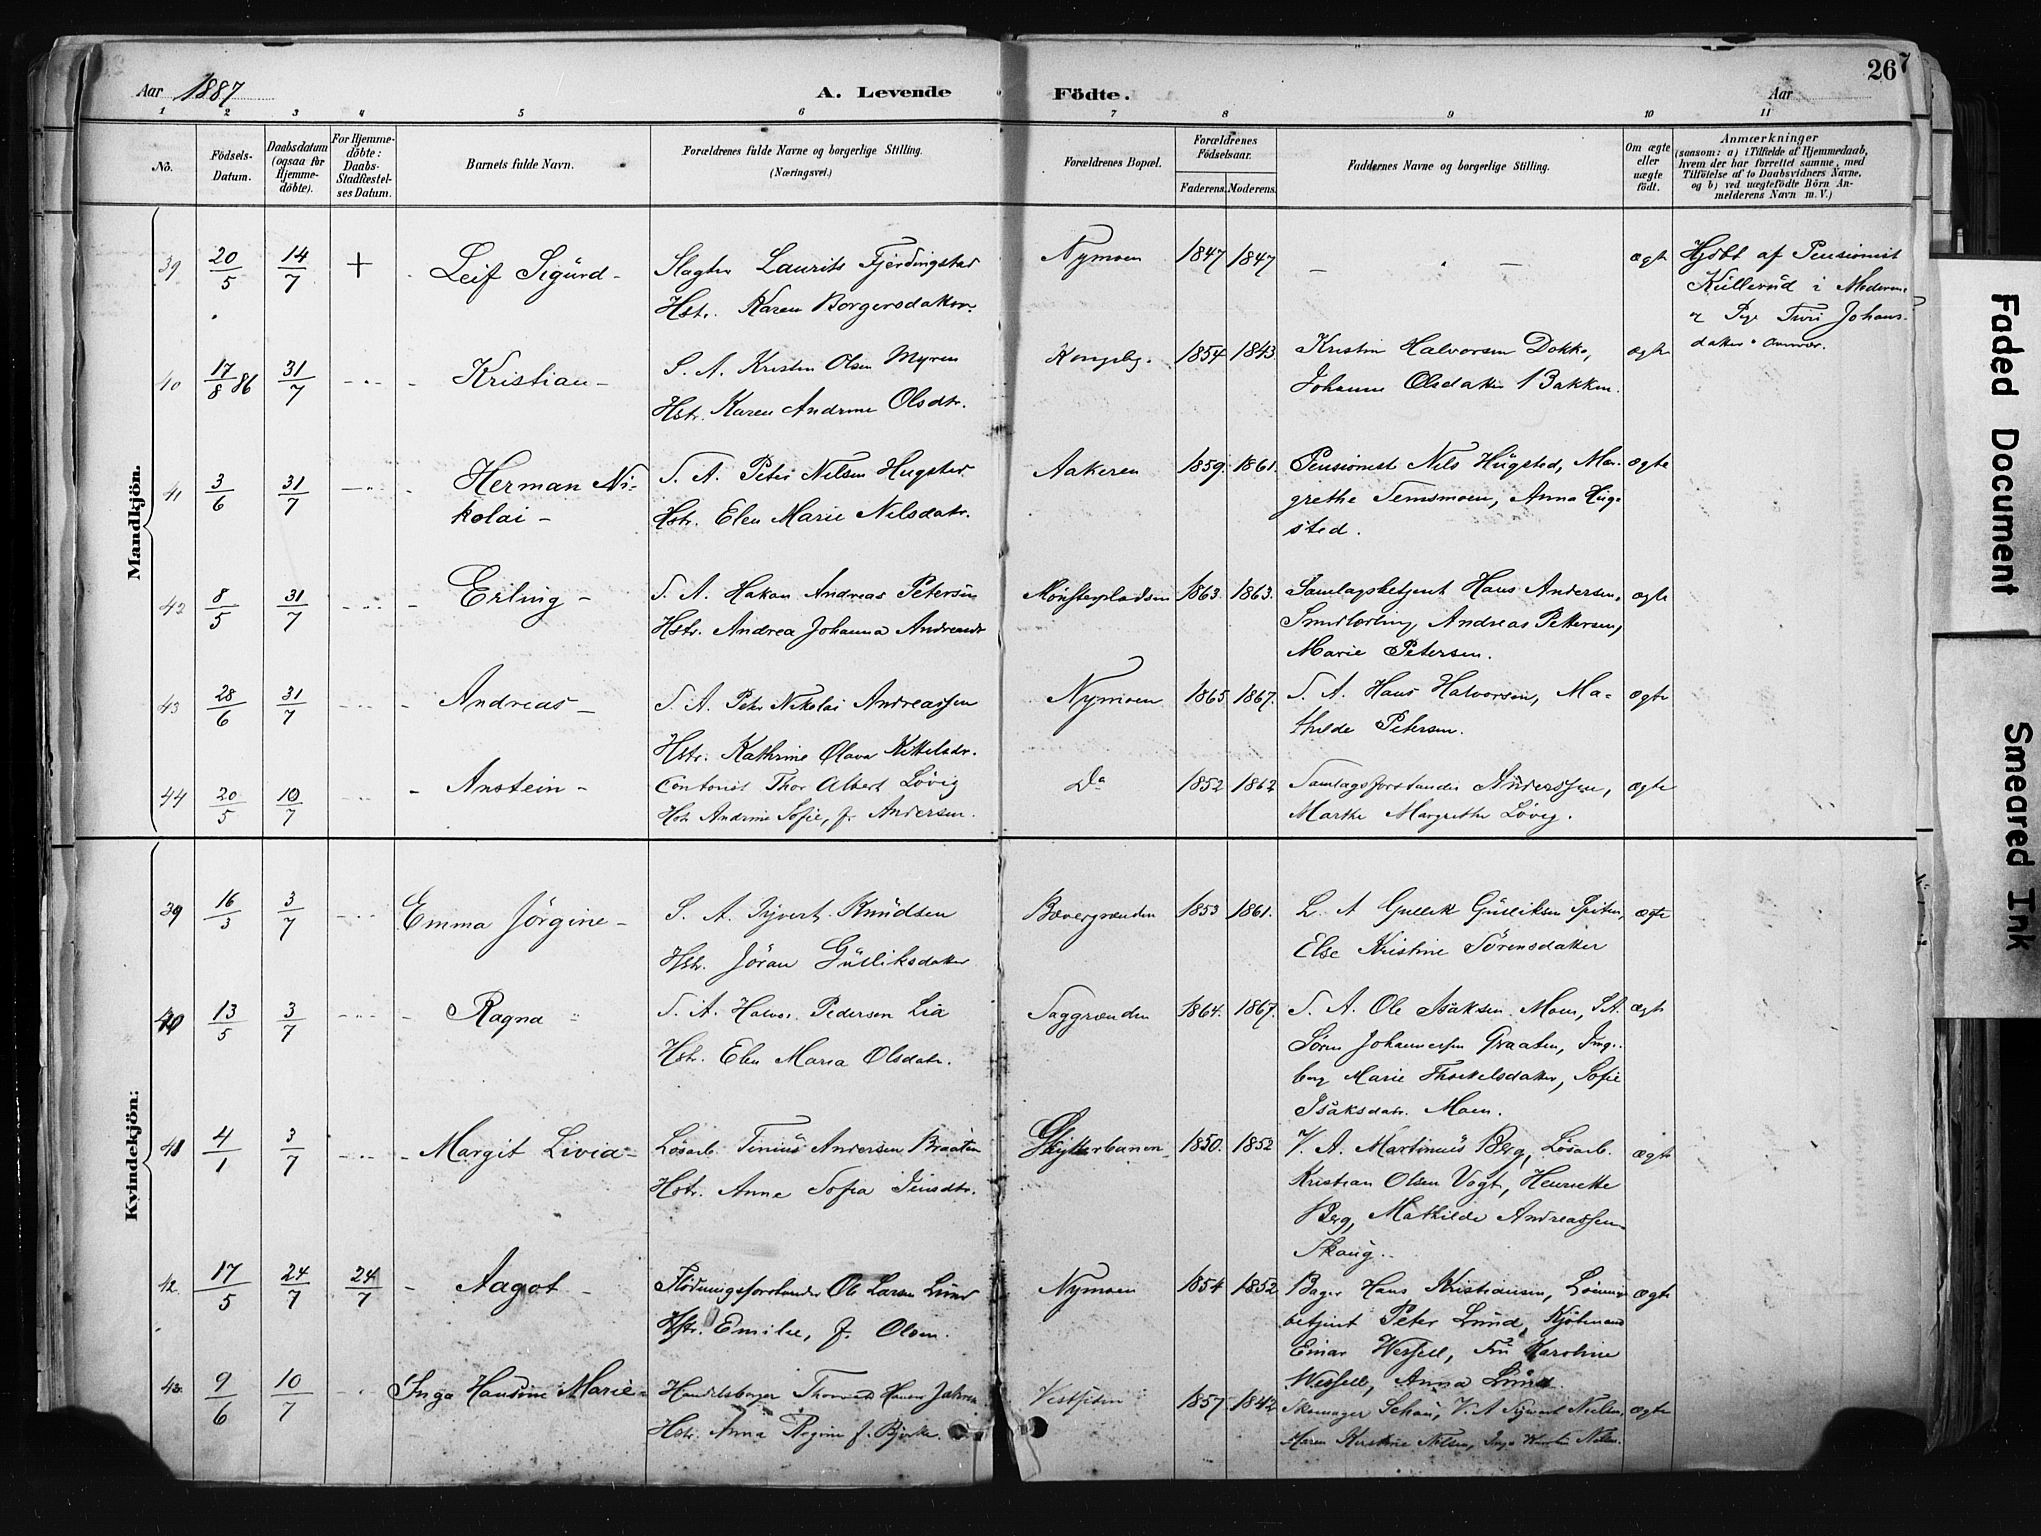 Aar 1887
A. Levende Födte.
Aar
267
1 2 3 4 5 6 7 8 9 10 11
No.
Födsels-Datum.
Daabsdatum (ogsaa for Hjemme-döbte).
For Hjemme-döbte: Daabs-Stadfæstel-ses Datum.
Barnets fulde Navn.
Forældrenes fulde Navne og borgerlige Stilling. (Næringsvei.)
Forældrenes Bopæl.
Forældrenes Födselsaar.
Faderens. Moderens.
Faddernes Navne og borgerlige Stilling.
Om ægte eller uægte födt.
Anmærkninger
(saasom: a) i Tilfælde af Hjemmedaab,
hvem der har forrettet samme, med
Tilföielse af to Daabsvidners Navne,
og b) ved uægtefödte Börn An-
melderens Navn m.V.)
Mandkjön.
39 20/5 14/7 + Leif Sigurd - Slagter Laurits Fjerdingstad Nymoen 1847 1847 - " - ægte Hjdbt af Pensionist
Hstr. Karen Borgersdatter
Kullerud i Moderens
Pige Turi Johans-
datter
40 17/8 86 31/7 Kristian - S. A. Kristen Olsen Myren Kongsbg. 1854 1843 Kristen Halvorsen Dokka, ægte
Hstr. Karen Andrine Olsdtr. Johanne Olsdatter Bakken.
41 3/6 31/7 Herman Ni- S. A. Peter Nilsen Hugsted Aakeren 1859. 1861. Pensionist Nels Hugsted, Mar- ægte
kolai - Hstr. Elen Marie Nilsdatr. grethe Temsmoen, Anna Hug-
sted.
42 8/5 31/7 Erling - S. A. Hakon Andreas Petersen Mönsterpladsen 1863. 1863. Samlagsbetjent Hans Andersen, ægte
Hstr. Andrea Johanna Andreasdtr Smedlærling Andreas Pettersen,
Marie Petersen.
43 28/6 31/7 Andreas - S. A. Peter Nikolai Andreassen Nymoen 1865 1867. S. A. Hans Halvorsen, Ma- ægte
Hstr. Kathrine Olava Kittelsdr. thilde Petersen.
44 20/5 10/7 Anstein - Contorist Thor Albert Lövig Do 1852 1862 Samlagsforstander Anderssen, ægte
Hstr Andrine Sofie, f. Andersen. Marthe Margrethe Lövig.
Kvindekjön:
39 16/3 3/7 Emma Jörgine - S. A. Syvert Knudsen Bævergrænden 1853 1861. L. A Gullik Gulliksen Spiten, ægte
Hstr. Jöran Gulliksdatter Else Kristine Sörensdatter
40 13/5 3/7 Ragna S. A. Halvor Pedersen Lia Saggrænden 1864. 1867. S. A. Ole Isaksen Moen, S.A. ægte
Hstr. Elen Maria Olsdatr. Sören Johannesen Graaten, Inge-
borg Marie Thorkelsdatter, Sofie
Isaksdatr. Moen.
41 4/1 3/7 Margit Livia - Lösarb. Tinius Andersen Braaten Skytterbanen 1850. 1852 V. A. Martinus Berg, Lösarb. ægte
Hstr. Anne Sofia Jensdtr. Kristian Olsen Vogt, Henriette
Berg, Mathilde Andreassen
Skaug.
42 17/5 24/7 24/7 Aagot - Flödningsforstander Ole Larsen Lund Nymoen 1854 1852 Bager Hans Kristiansen, ægte
Hstr. Emilie, f. Olsen. betjent Peter Lund, Kjöbmand
Einar Wessell, Fru Karoline
Wessell, Anna Lund
43 9/6 10/7 Inga Hansine Marie - Handelsborger Thorvald Hansen Vestsiden 1857. 1842 Skomager Schau, V. A Syvert Nielsen, ægte
Hstr. Anna Regine f. Bjerke. Maren Kirstine Nilsen, Inga Nilsen.
Faded Document
Smeared Ink